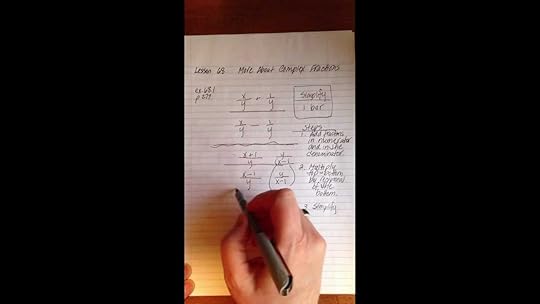 Lesson 68 More About Complex Fractions
ex. 68.1
p. 279
x/y + 1/y
x/y − 1/y
Simplify
1 bar
Steps
1. Add fractions
in numerator
and in the
denominator.
x+1/y y/x−1
x−1/y y/x−1
2. Multiply
top + bottom
by reciprocal
of the
bottom.
3. Simplify